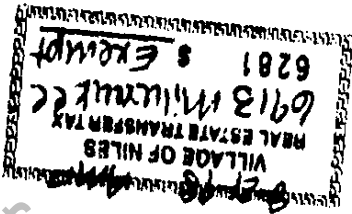 VILLAGE OF NILES
REAL ESTATE TRANSFER TAX
6913 Milwaukee
6281 $ Exempt